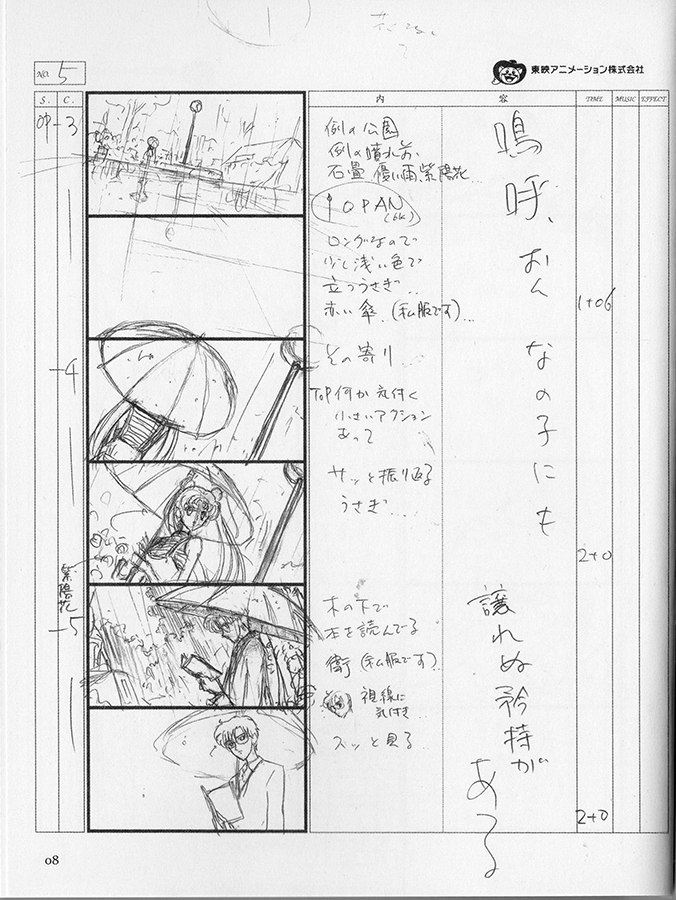 NO. 5
東映アニメーション株式会社
S. C. 内容 TIME MUSIC EFFECT
OP-3
例の公園
例の晴れ前
石畳 優しい雨、紫陽花...
↑OPAN
(6K)
ロングなので
少し浅い色で
立つうさぎ...
赤い傘、(私服です)...
1+06
-4
その寄り
TOP 何か気付く
小さいアクション
あって
サッと振り返る
うさぎ....
2+0
紫陽花
-5
木の下で
本を読んでる
衛 (私服です)..
視線に
気付き...
スッと見る...
2+0
嗚呼、おんなの子にも
譲れぬ矜持が
ある
08